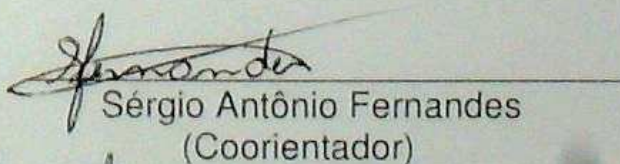 Fernandes
Sérgio Antônio Fernandes
(Coorientador)